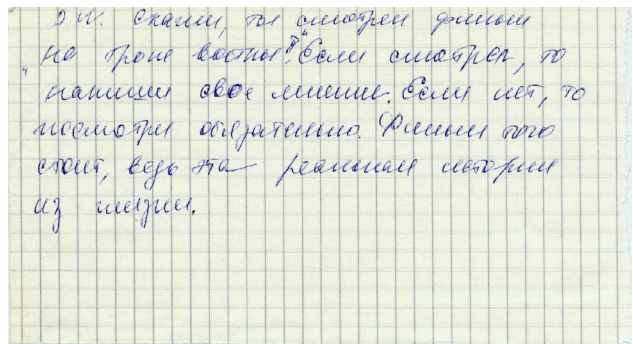 Скажи, ты смотрел фильм
"На гроне волны"? Если смотрел, то
напиши свое мнение. Если нет, то
посмотри обязательно. Фильм того
стоит, ведь эта реальная история
из жизни.